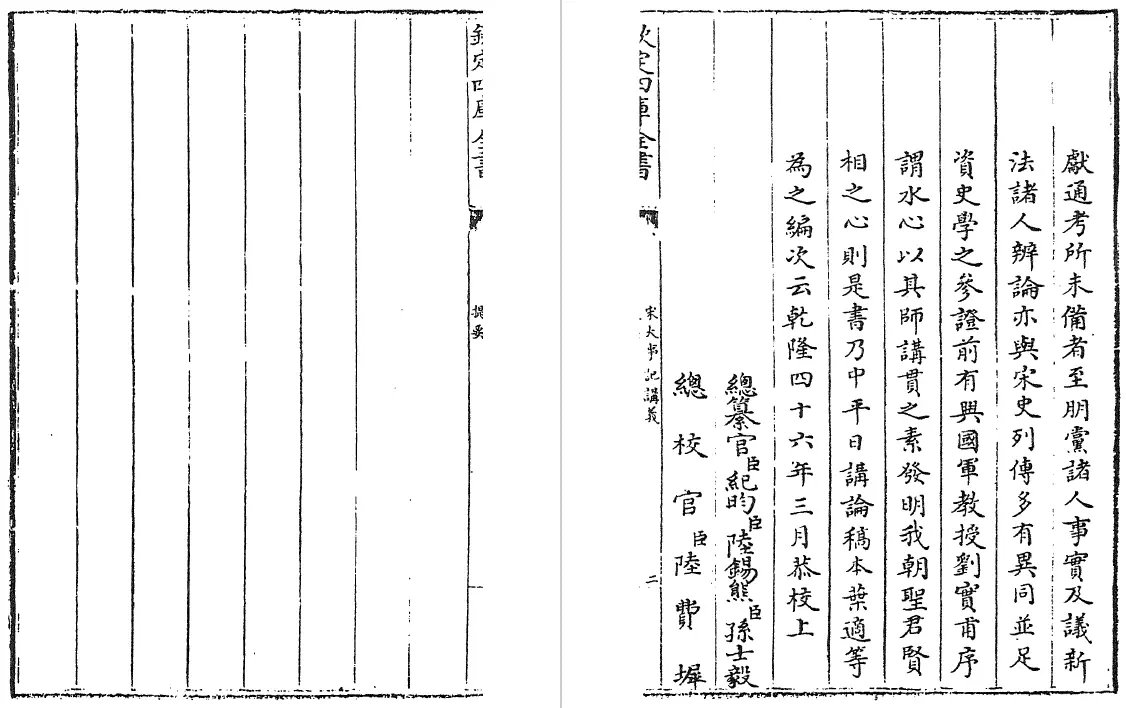 獻通考所未備者至朋黨諸人事實及議新
法諸人辨論亦與宋史列傳多有異同並足
資史學之參證前有興國軍教授劉實甫序
謂水心以其師講貫之素發明我朝聖君賢
相之心則是書乃中平日講論稿本葉適等
為之編次云乾隆四十六年三月恭校上
總纂官臣紀昀臣陸錫熊臣孫士毅
總校官臣陸費墀
欽定四庫全書
宋大事記講義
二
欽定四庫全書
提要